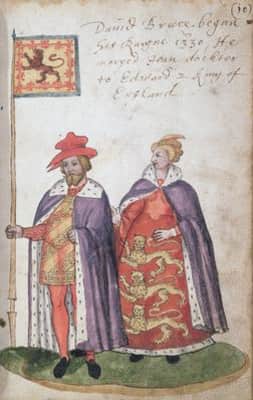 (10)
David Bruce began
his Raigne 1330 He
maryed Joan dochter
to Edward 2 King of
England